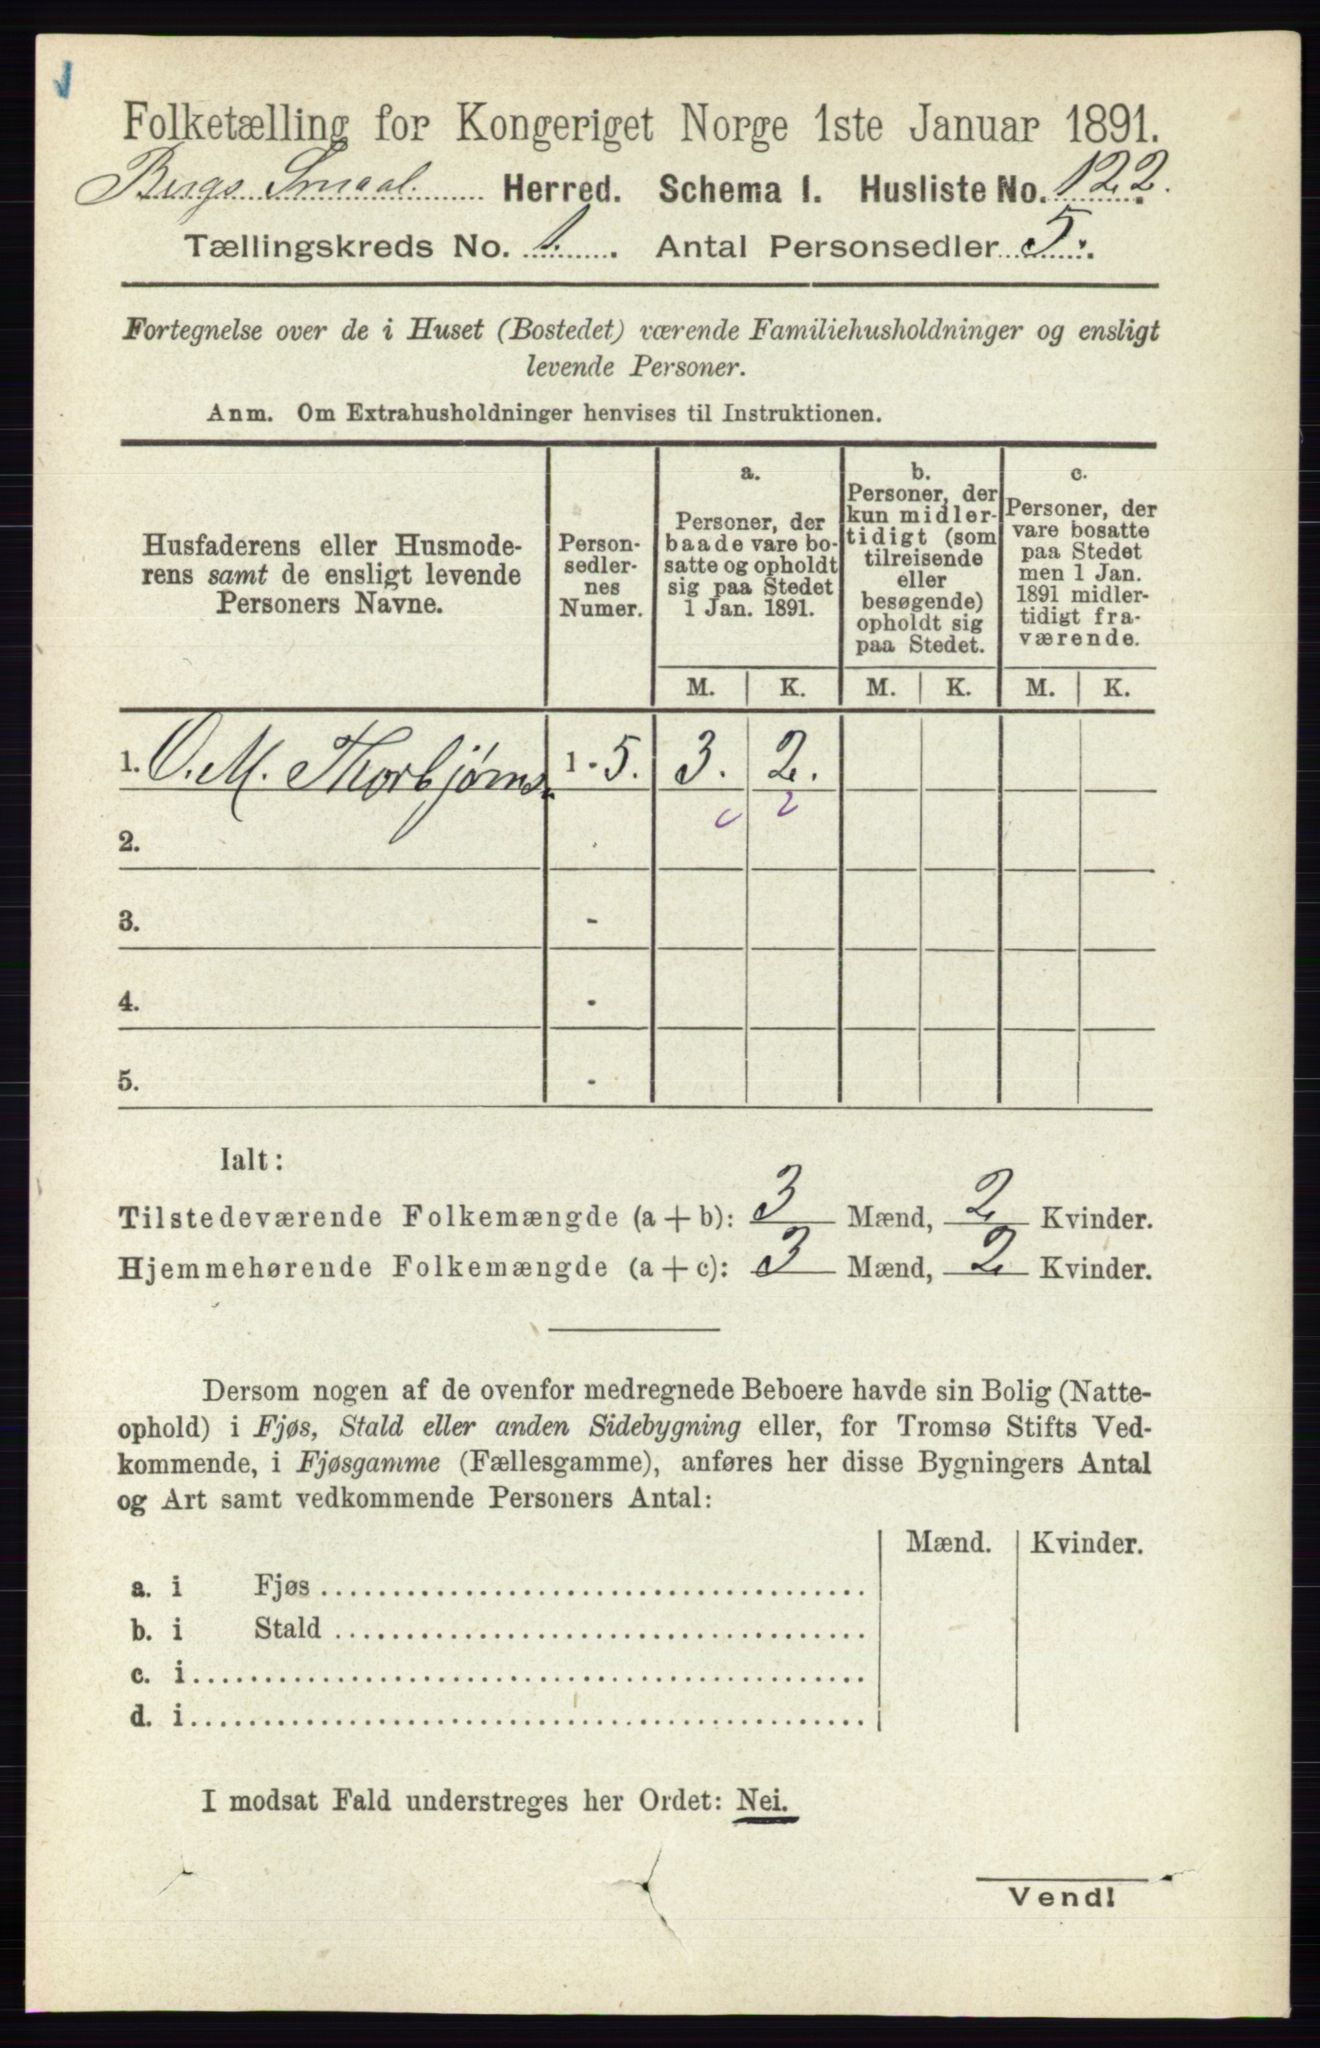 Folketælling for Kongeriget Norge 1ste Januar 1891.
Bergs Smaal. Herred. Schema 1. Husliste No. 122.
Tællingskreds No. 1. Antal Personsedler 5.
Fortegnelse over de i Huset (Bostedet) værende Familiehusholdninger og ensligt
levende Personer.
Anm. Om Extrahusholdninger henvises til Instruktionen.
Husfaderens eller Husmode-
rens samt de ensligt levende
Personers Navne.
Person-
sedler-
nes
Numer.
a.
Personer, der
baade vare bo-
satte og opholdt
sig paa Stedet
1 Jan. 1891.
b.
Personer, der
kun midler-
tidigt (som
tilreisende
eller
besøgende)
opholdt sig
paa Stedet.
c.
Personer, der
vare bosatte
paa Stedet
men 1 Jan.
1891 midler-
tidigt fra-
værende.
M. K. M. K. M. K.
1. O. M. Thorbjørns. 1 - 5. 3. 2.
2
2. -
3. -
4. -
5. -
Ialt:
Tilstedeværende Folkemængde (a + b): 3 Mænd, 2 Kvinder.
Hjemmehørende Folkemængde (a + c): 3 Mænd, 2 Kvinder.
Dersom nogen af de ovenfor medregnede Beboere havde sin Bolig (Natte-
ophold) i Fjøs, Stald eller anden Sidebygning eller, for Tromsø Stifts Ved-
kommende, i Fjøsgamme (Fællesgamme), anføres her disse Bygningers Antal
og Art samt vedkommende Personers Antal:
Mænd. Kvinder.
a. i Fjøs
b. i Stald
c. i
d. i
I modsat Fald understreges her Ordet: Nei.
Vend!